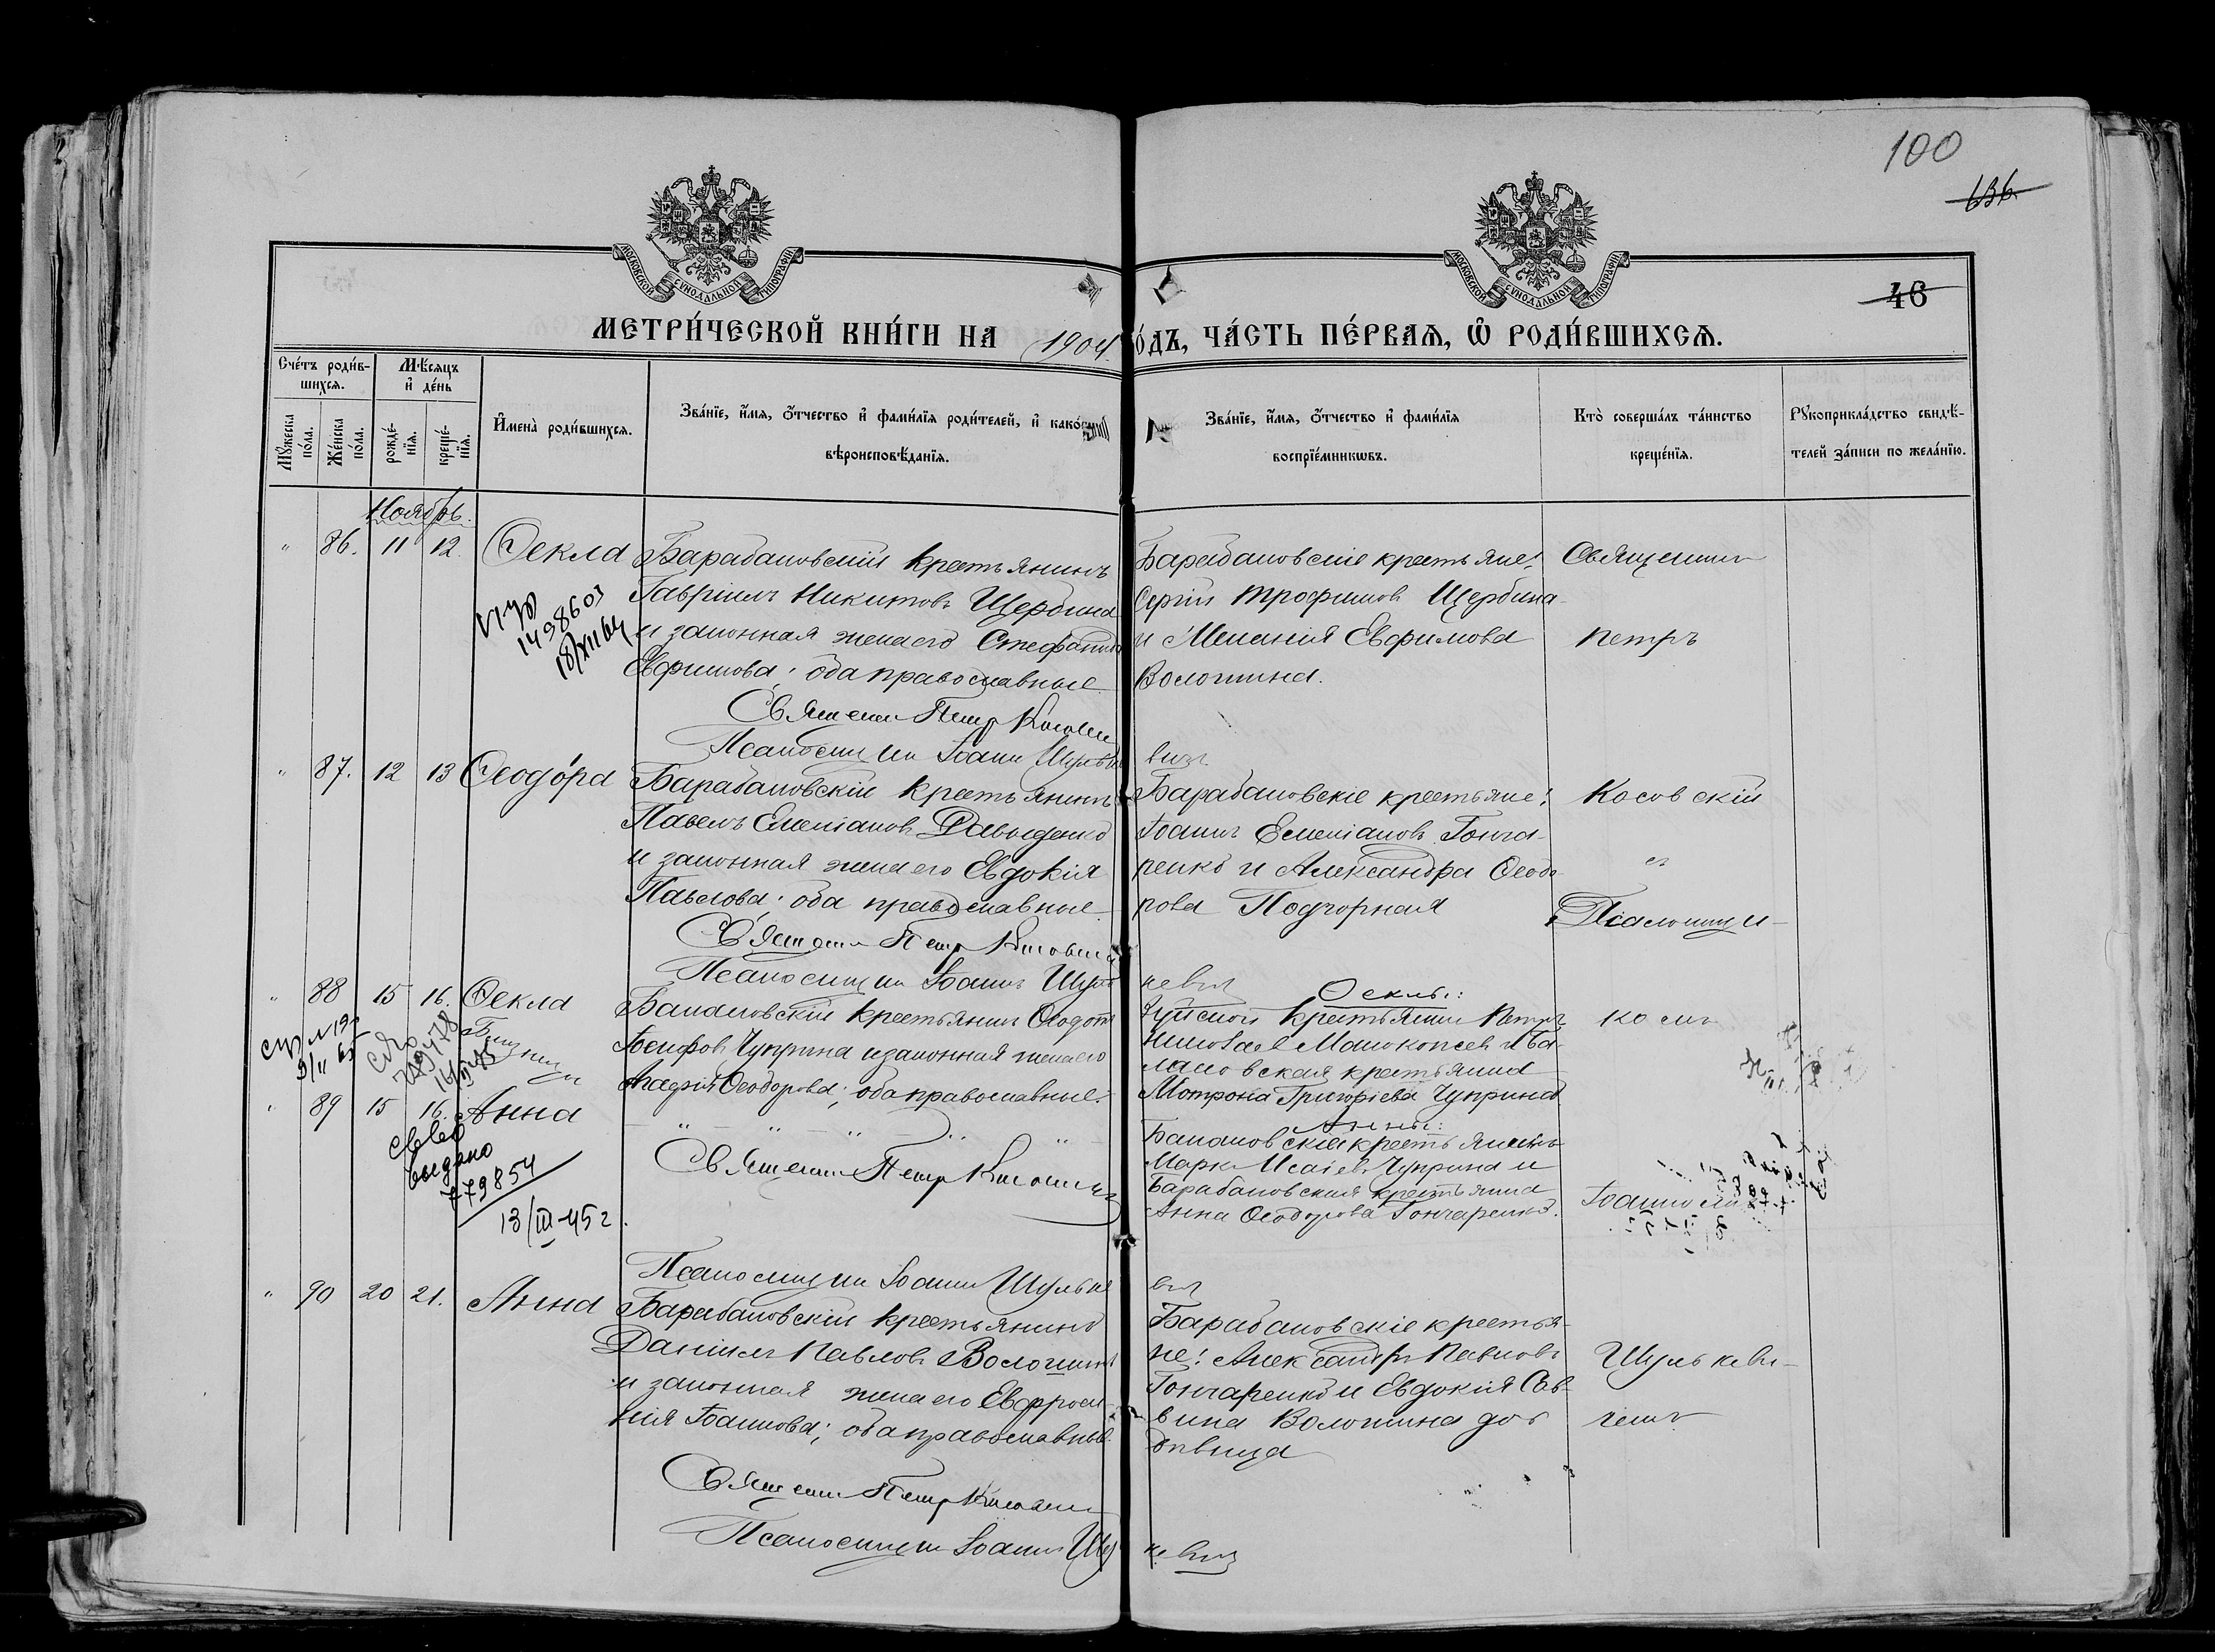 100
136
МОСКОВСКОЙ СѴНОДАЛЬНОЙ ТИПОГРАФІИ
МОСКОВСКОЙ СѴНОДАЛЬНОЙ ТИПОГРАФІИ
46
МЕТРИ́ЧЕСКОЙ КНИ́ГИ НА 1904 О́ДЪ, ЧА́СТЬ ПЕ́РВАЯ, Ѡ҆ РОДИ́ВШИХСЯ.
Сче́тъ роди́в-
шихся.
Мꙋжеска по́ла.
Же́нска по́ла.
Мѣ́сяцъ
и҆ де́нь
рожде́-
нїя.
креще́-
нїя.
И҆мена̀ роди́вшихся.
Зва́нїе, и҆́мя, ѻ҆́тчество и҆ фами́лїя роди́телей, и҆ како́
вѣроисповѣ́данїя.
Зва́нїе, и҆́мя, ѻ҆́тчество и҆ фами́лїя
воспрїе́мникѡвъ.
Кто̀ соверша́лъ та́инство
креще́нїя.
Рꙋкоприкла́дство свидѣ́-
телей за́писи по жела́нїю.
Ноябрь.
" 86. 11 12. Ѳекла
1498603
Барабановскій крестьянинъ
Гавріилъ Никитовъ Щербина
и законная жена его Стефанида
Евфимова; оба православные
Священ Петр Косовск
Псаломщик Іоанн Шульке
вичъ
Барабановскіе крестьяне:
Сергій Трофимовъ Щербина
и Меланія Евфимова
Волошина.
Священникъ
Петръ
" 87. 12 13 Ѳеодо́ра
Барабановскій крестьянинъ
Павелъ Емеліановъ Давыденко
и законная жена его Евдокія
Павлова; оба православные.
Священ Петр Косовскі
Псаломщик Іоаннъ Шуль
кевич
Барабановскіе крестьяне:
Іоаннъ Емеліановъ Гонча-
ренко и Александра Ѳеодо
рова Подгорная
Косовскій
съ
Псаломщи-
" 88 15 16. Ѳекла
Близнецы
Балановскій крестьянинъ Ѳеодотъ
Іосифовъ Чуприна и законная жена его
Ѳеодорова; оба православные.
Ѳеклы:
крестьянин Петръ
и Ба-
лановская крестьянка
Мотрона Григоріева Чуприна.
комъ
" 89 15 16. Анна
" " " " "
выдано
779854
13/III-45 г.
Священ Петр Косовскі
Псаломщик Іоанн Шульке
вич
Анны:
Балановскій крестьянинъ
Марк Исаіевъ Чуприна и
Барабановская крестьянка
Анна Ѳеодорова Гончаренко.
Іоанномъ
" 90 20 21. Анна
Барабановскій крестьянинъ
Даніилъ Павловъ Волошинъ
и законная жена его Евфроси-
нія Іоаннова; оба православные.
Священ Петр Косовск
Псаломщик Іоаннъ Шул
кевич
Барабановскіе крестья-
не: Александръ Павловъ
Гончаренко и Евдокія Сав-
вина Волошина
дѣвица
Шулькеви-
чемъ